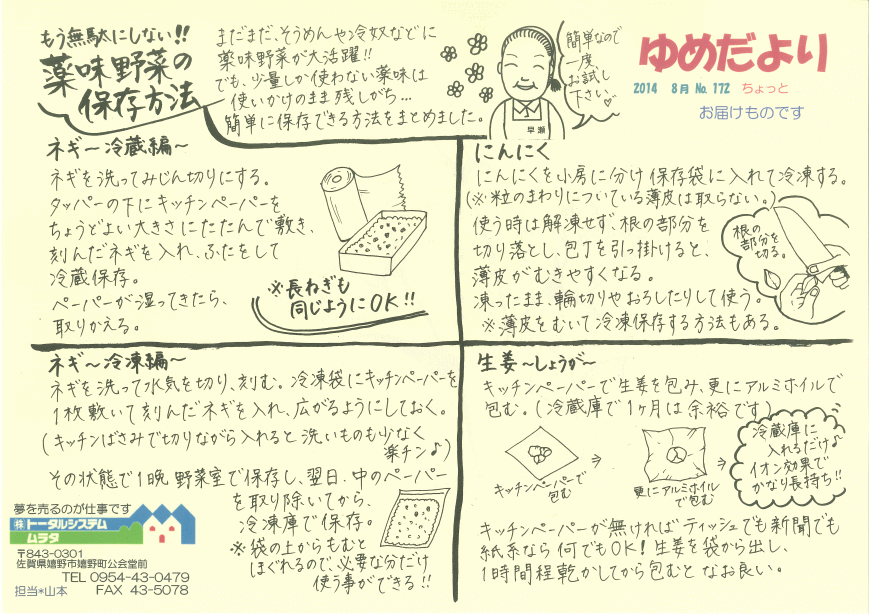 もう無駄にしない!!
薬味野菜の
保存方法
まだまだ、そうめんや冷奴などに
薬味野菜が大活躍!!
でも、少量しか使わない薬味は
使いかけのまま残しがち…
簡単に保存できる方法をまとめました。
早瀬
簡単なので
一度
お試し
下さい♡
ゆめだより
2014 8月 No.172 ちょっと
お届けものです
ネギ~冷蔵編~
ネギを洗ってみじん切りにする。
タッパーの下にキッチンペーパーを
ちょうどよい大きさにたたんで敷き、
刻んだネギを入れ、ふたをして
冷蔵保存。
ペーパーが湿ってきたら、
取りかえる。
※長ねぎも
同じようにOK!!
にんにく
にんにくを小房に分け保存袋に入れて冷凍する。
(※粒のまわりについている薄皮は取らない。)
使う時は解凍せず、根の部分を
切り落とし、包丁を引っ掛けると、
薄皮がむきやすくなる。
凍ったまま、輪切りやおろしたりして使う。
※薄皮をむいて冷凍保存する方法もある。
根の
部分を
切る。
ネギ~冷凍編~
ネギを洗って水気を切り、刻む。冷凍袋にキッチンペーパーを
1枚敷いて刻んだネギを入れ、広がるようにしておく。
(キッチンばさみで切りながら入れると洗いものも少なく
楽チン♪)
その状態で1晩野菜室で保存し、翌日、中のペーパー
を取り除いてから、
冷凍庫で保存。
※袋の上からもむと
ほぐれるので、必要な分だけ
使う事ができる!!
生姜~しょうが~
キッチンペーパーで生姜を包み、更にアルミホイルで
包む。(冷蔵庫で1ヶ月は余裕です)
キッチンペーパーで
包む
⇒
更にアルミホイル
で包む
⇒
冷蔵庫に
入れるだけ♪
イオン効果で
かなり長持ち!!
キッチンペーパーが無ければティッシュでも新聞でも
紙系なら何でもOK!生姜を袋から出し、
1時間程乾かしてから包むとなお良い。
夢を売るのが仕事です
㈱トータルシステム
ムラタ
〒843-0301
佐賀県嬉野市嬉野町公会堂前
TEL 0954-43-0479
担当*山本 FAX 43-5078